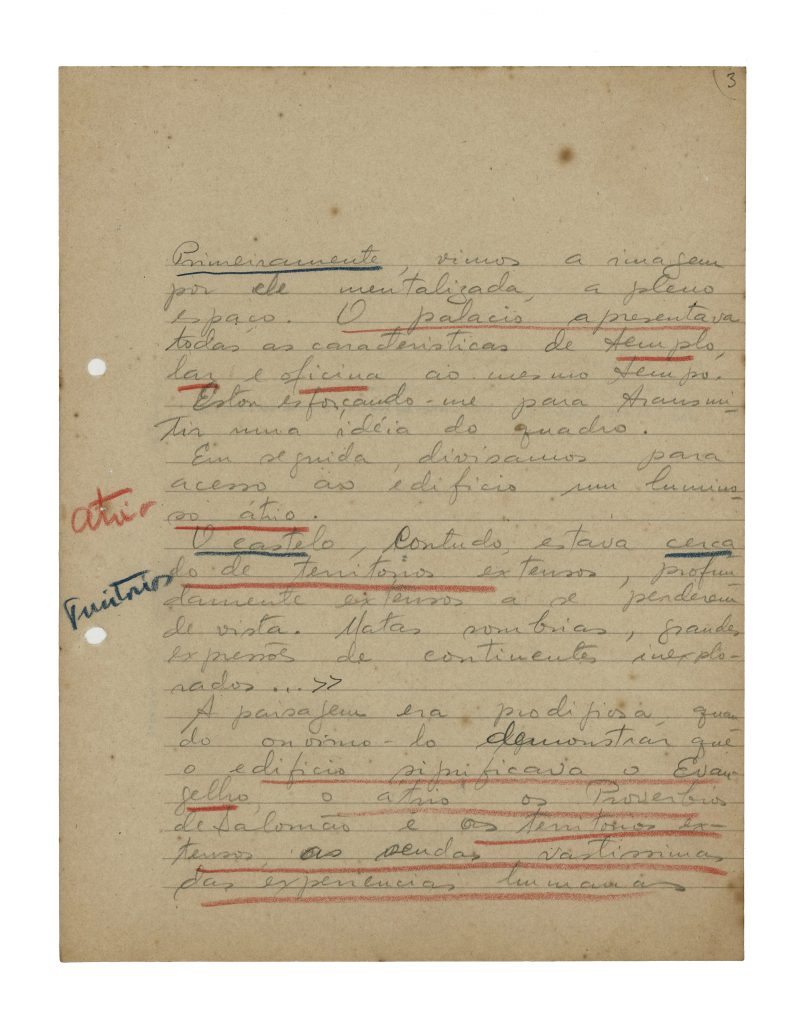 3
Primeiramente, vimos a imagem
por ele mentalizada, a pleno
espaço. O palacio apresentava
todas as caracteristicas de templo,
lar e oficina ao mesmo tempo.
Estou esforçando-me para transmi-
tir uma idéia do quadro.
Em seguida, divisamos para
acesso ao edificio um lumino-
so átrio.
Atrio
O castelo, contudo, estava cerca
do de territorios extensos, profun-
Territorios
damente extensos a se perderem
de vista. Matas sombrias, grandes
expressões de continentes inexplo-
rados...>>
A paisagem era prodigiosa, quan
do ouvimo-lo demonstrar que
o edificio significava o Evan-
gelho, o atrio os Proverbios
de Salomão e os territorios ex-
tensos, as sendas vastissimas
das experiencias humanas